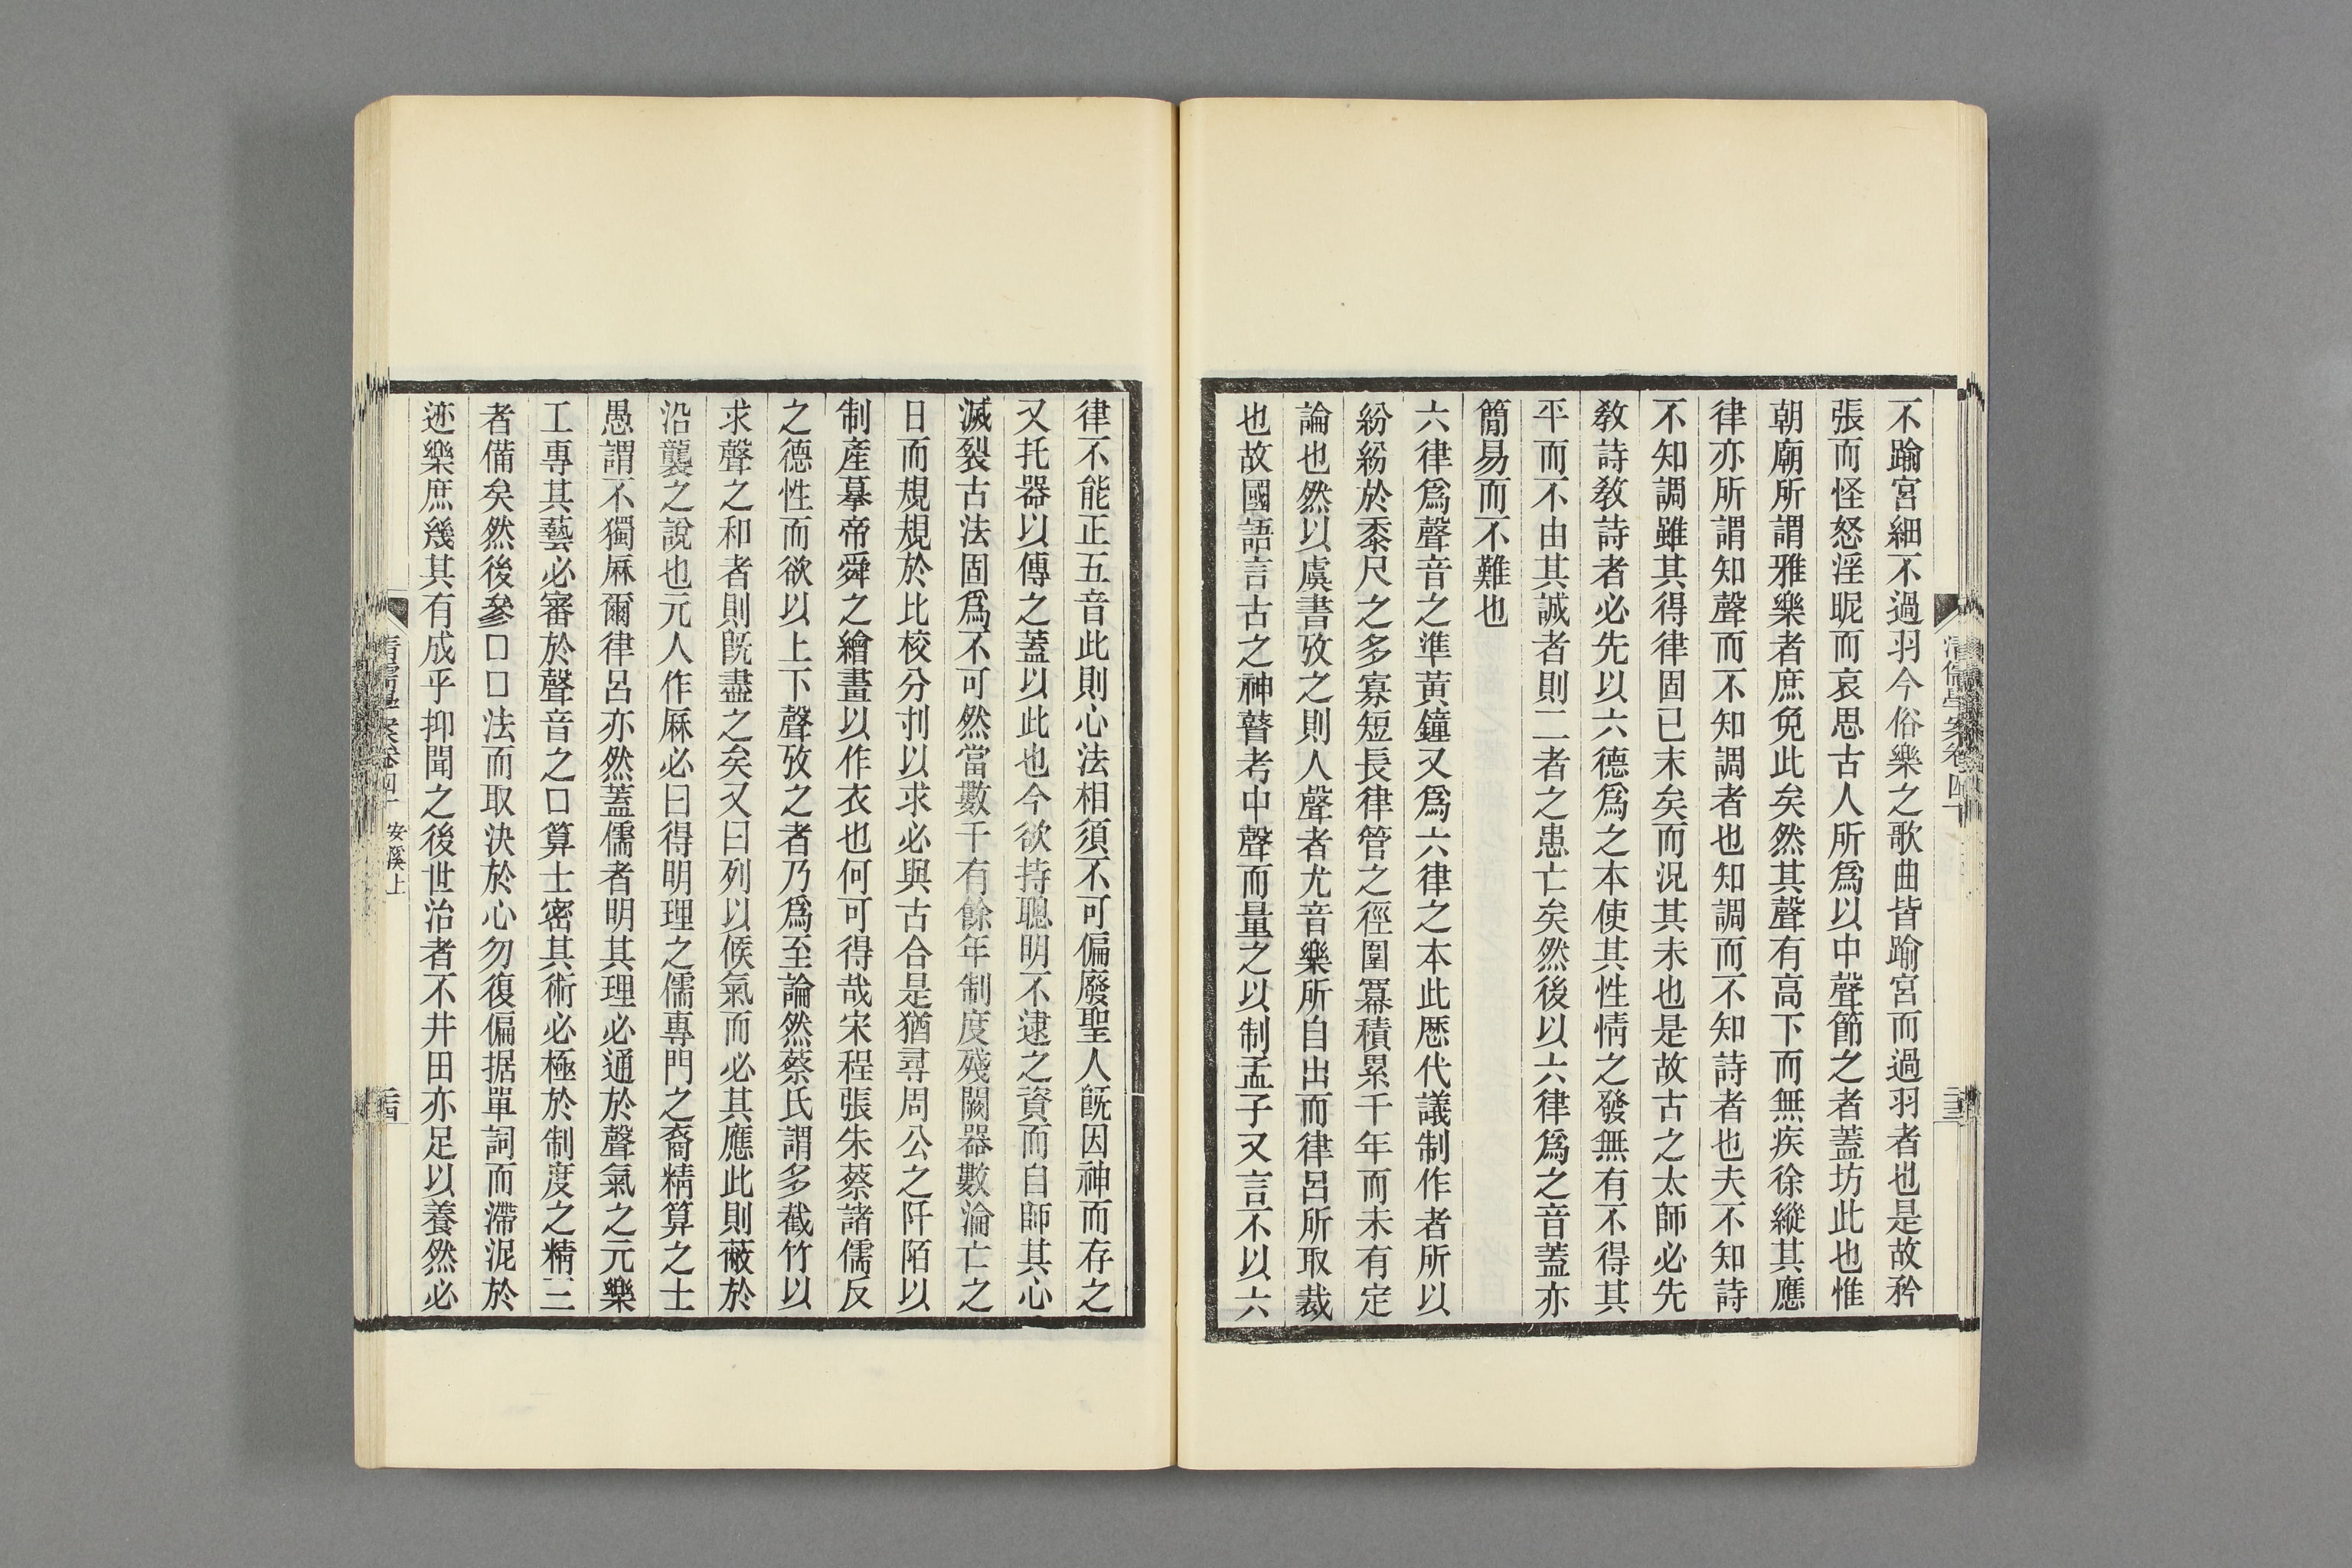 不踰宮細不過羽今俗樂之歌曲皆踰宮而過羽者也是故矜
張而怪怒淫昵而哀思古人所爲以中聲節之者蓋坊此也惟
朝廟所謂雅樂者庶免此矣然其聲有高下而無疾徐縱其應
律亦所謂知聲而不知調者也知調而不知詩者也夫不知詩
不知調雖其得律固已末矣而況其未也是故古之太師必先
敎詩敎詩者必先以六德爲之本使其性情之發無有不得其
平而不由其誠者則二者之患亡矣然後以六律爲之音蓋亦
簡易而不難也
六律爲聲音之準黃鐘又爲六律之本此歷代議制作者所以
紛紛於黍尺之多寡短長律管之徑圍冪積累千年而未有定
論也然以虞書攷之則人聲者尤音樂所自出而律呂所取裁
也故國語言古之神瞽考中聲而量之以制孟子又言不以六
律不能正五音此則心法相須不可偏廢聖人旣因神而存之
又托器以傳之蓋以此也今欲持聰明不逮之資而自師其心
滅裂古法固爲不可然當數千有餘年制度殘闕器數淪亡之
日而規規於比校分刌以求必與古合是猶尋周公之阡陌以
制產摹帝舜之繪畫以作衣也何可得哉宋程張朱蔡諸儒反
之德性而欲以上下聲攷之者乃爲至論然蔡氏謂多截竹以
求聲之和者則旣盡之矣又曰列以候氣而必其應此則蔽於
沿襲之說也元人作厤必曰得明理之儒專門之裔精算之士
愚謂不獨厤爾律呂亦然蓋儒者明其理必通於聲氣之元樂
工專其藝必審於聲音之口算士密其術必極於制度之精三
者備矣然後參口口法而取決於心勿復偏据單詞而滯泥於
迹樂庶幾其有成乎抑聞之後世治者不井田亦足以養然必
清儒學案卷四十
安溪上